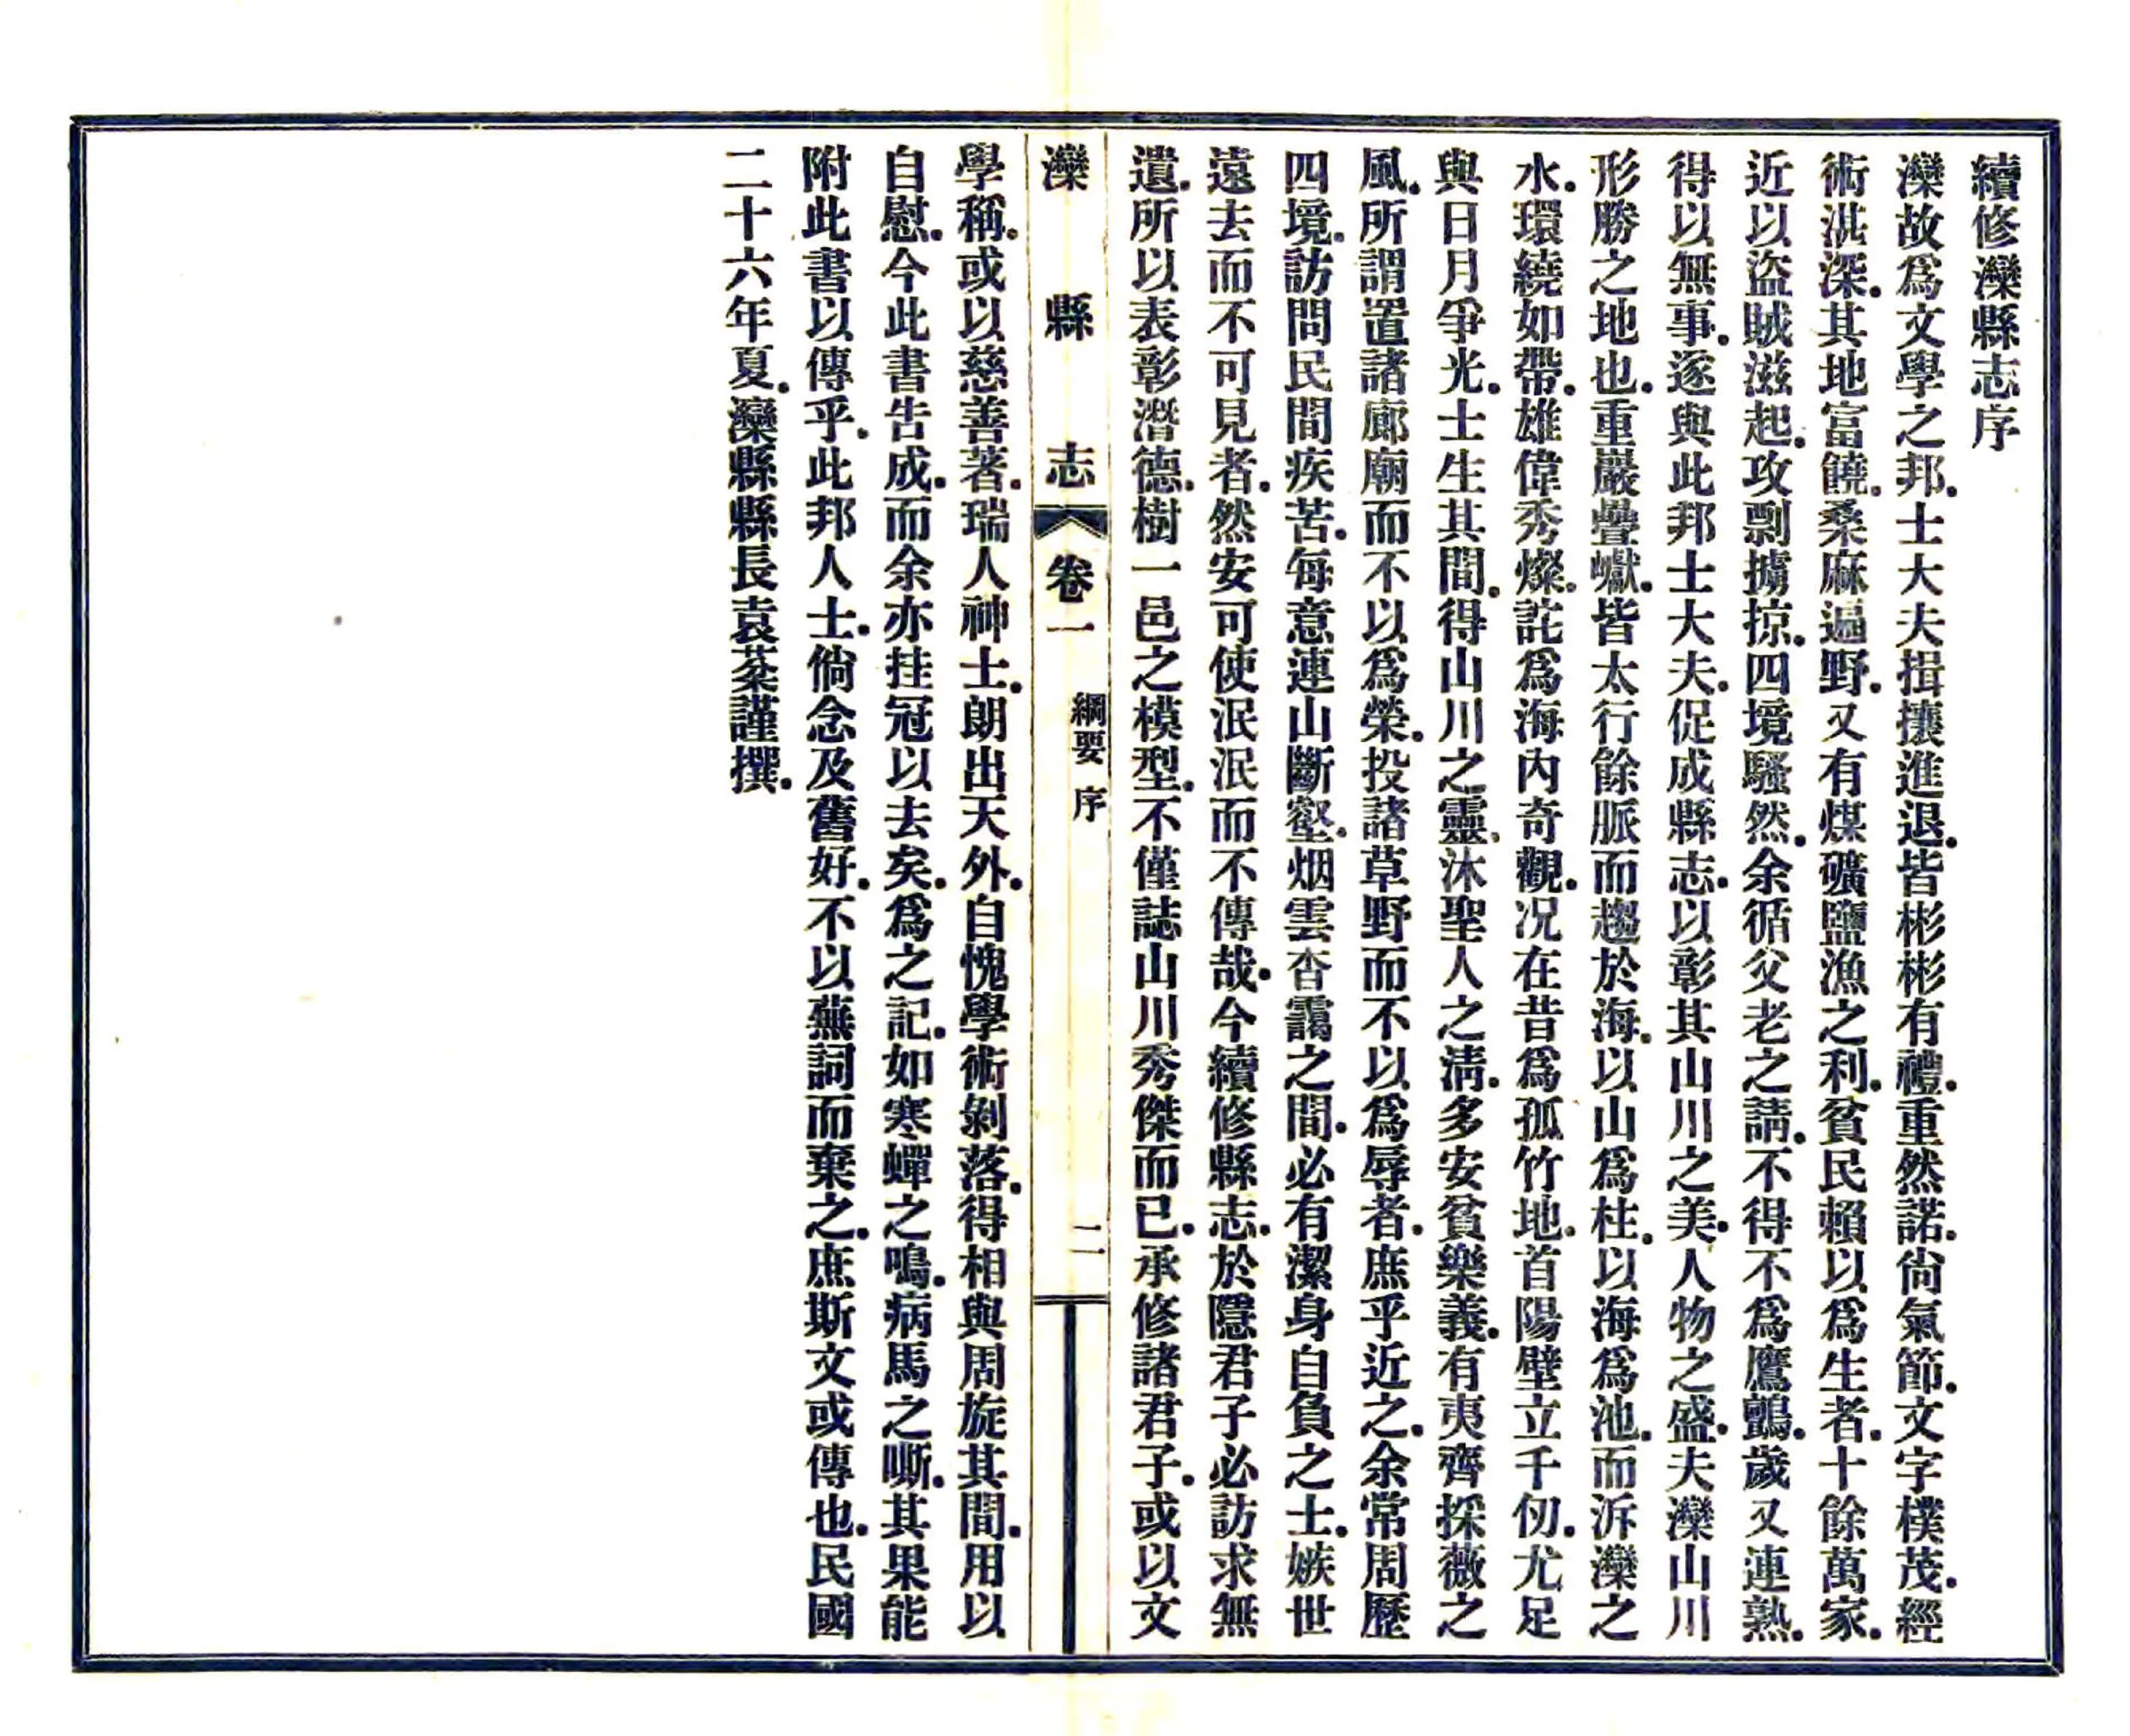 續修灤縣志序
灤故爲文學之邦.士大夫揖攘進退.皆彬彬有禮.重然諾.尙氣節.文字樸茂.經
術湛深.其地富饒.桑麻遍野.又有煤礦鹽漁之利.貧民賴以爲生者.十餘萬家.
近以盜賊滋起.攻剽擄掠.四境騷然.余循父老之請.不得不爲鷹鸇.歲又連熟.
得以無事.遂與此邦士大夫.促成縣志.以彰其山川之美.人物之盛.夫灤山川
形勝之地也.重巖疊巘.皆太行餘脈而趨於海.以山爲柱.以海爲池.而泝灤之
水.環繞如帶.雄偉秀燦.詫爲海內奇觀.况在昔爲孤竹地.首陽壁立千仞.尤足
與日月爭光.士生其間.得山川之靈.沐聖人之淸.多安貧樂義.有夷齊採薇之
風.所謂置諸廊廟而不以爲榮.投諸草野而不以爲辱者.庶乎近之.余常周歷
四境.訪問民間疾苦.每意連山斷壑.烟雲杳靄之間.必有潔身自負之士.嫉世
遠去而不可見者.然安可使泯泯而不傳哉.今續修縣志.於隱君子必訪求無
遺.所以表彰潛德.樹一邑之模型.不僅誌山川秀傑而已.承修諸君子.或以文
灤縣志 卷一 綱要 序 二
學稱.或以慈善著.瑞人神士.朗出天外.自愧學術剝落.得相與周旋其間.用以
自慰.今此書告成.而余亦挂冠以去矣.爲之記.如寒蟬之鳴.病馬之嘶.其果能
附此書以傳乎.此邦人士.倘念及舊好.不以蕪詞而棄之.庶斯文或傳也.民國
二十六年夏.灤縣縣長袁棻謹撰.